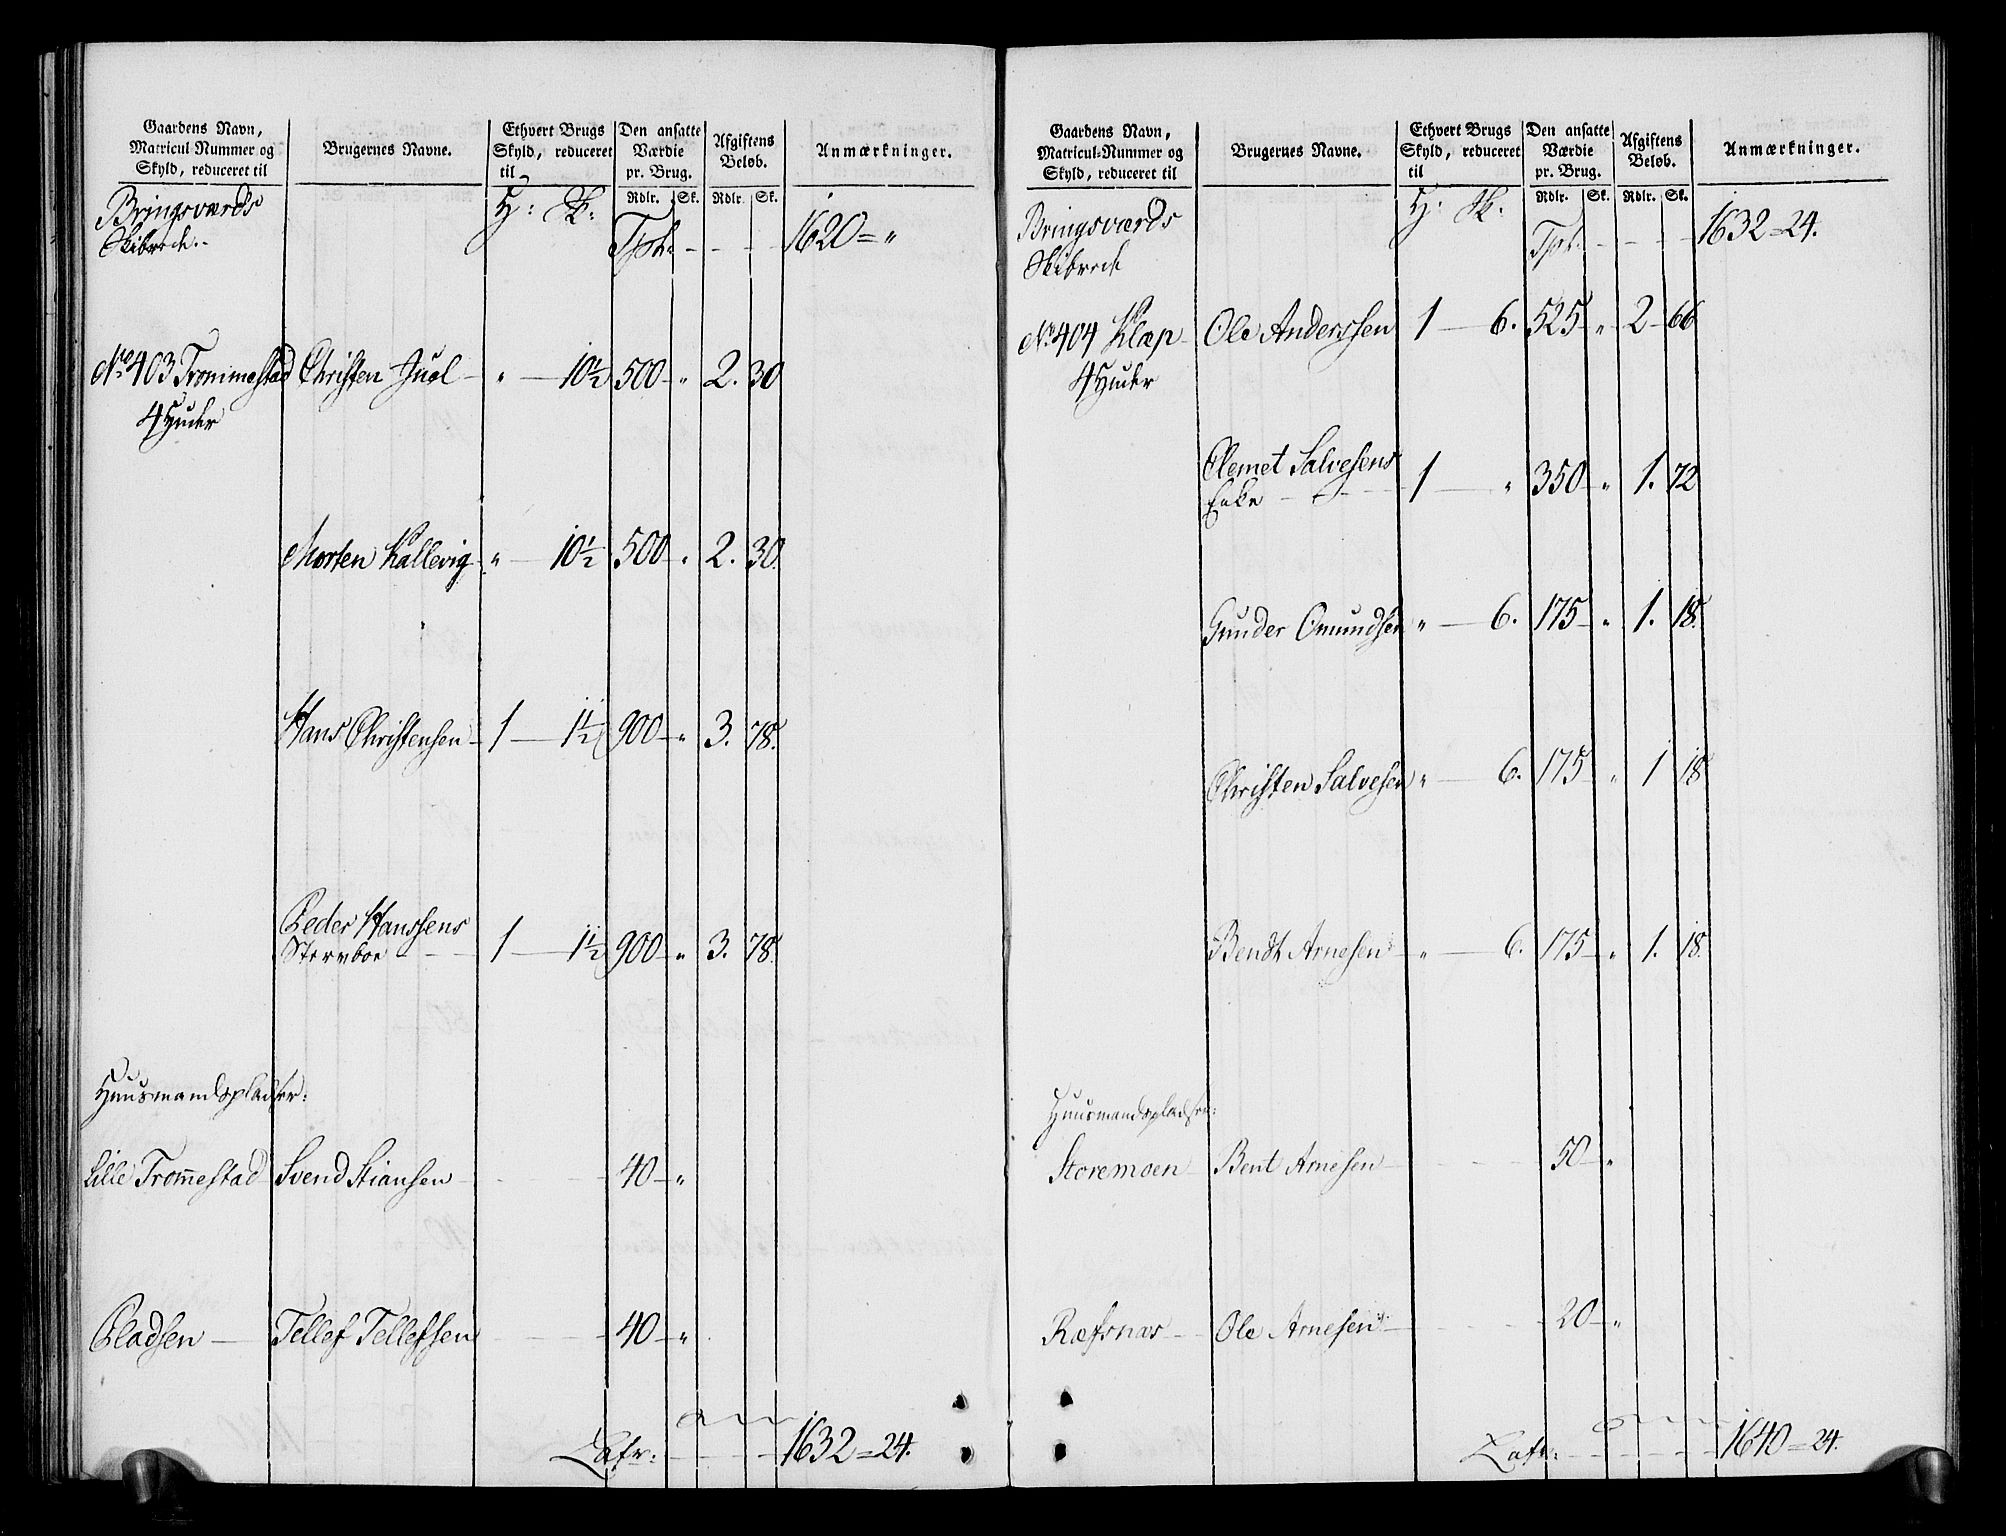 Gaardens Navn,
Matricul Nummer og
Skyld, reduceret til
Brugernes Navne.
Ethvert Brugs
Skyld, reduceret
til
Den ansatte
Værdie
pr. Brug.
Afgiftens
Beløb.
Anmærkninger.
Rdlr. Sk. Rdlr. Sk.
Bringsværds
Skibrede.
H: Sk:
Tpt. 1620 = "
No 403 Trommestad Christen Juel " 10½ 500 " 2. 30
4 Huder
Morten Kallevig " 10½ 500 " 2. 30.
Hans Christensen 1 1½ 900 " 3. 78.
Peder Hanssens
Stervboe 1 1½ 900 " 3. 78.
Huusmandspladser:
Lille Trom̄estad Svend Stiansen 40 "
Pladsen Tellef Tellefsen 40 "
Lafr: 1632 = 24.
Gaardens Navn,
Matricul-Nummer og
Skyld, reduceret til
Brugernes Navne.
Ethvert Brugs
Skyld, reduceret
til
Den ansatte
Værdie
pr. Brug.
Afgiftens
Beløb.
Anmærkninger.
Rdlr. Sk. Rdlr. Sk.
Bringsværds
Skibrede
H: Sk:
Tpt. 1632 = 24.
No 404 Klæp Ole Anderssen 1 6. 525 " 2 66
4 Huder
Clemet Salvesens
Enke 1 " 350 " 1. 72
Gunder Omundsen " 6. 175 " 1. 18.
Christen Salvesen " 6. 175 " 1 18
Bendt Arnesen " 6. 175 " 1. 18.
Huusmandspladser:
Storemoen Bent Arnesen 50 "
Ræfsnæs Ole Arnesen 20 "
Lafr: 1640 = 24.